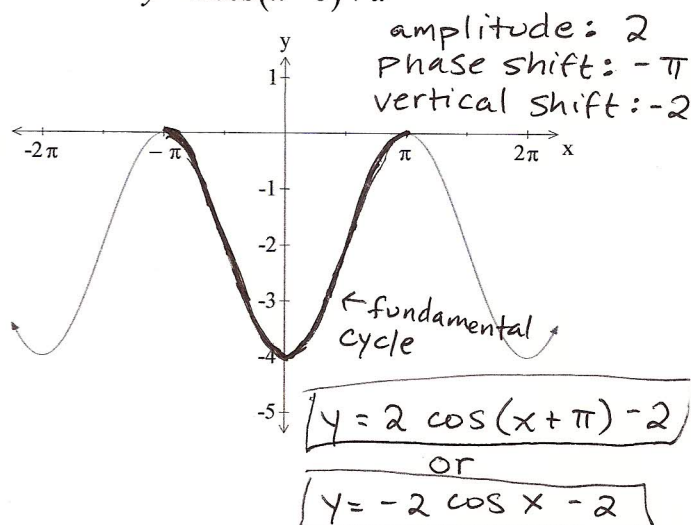 amplitude: 2
phase shift: -π
vertical shift: -2
y
1
-2π
-π
π
2π
x
-1
-2
-3
←fundamental
cycle
-4
-5
y = 2 cos(x+π) -2
or
y = -2 cos x - 2